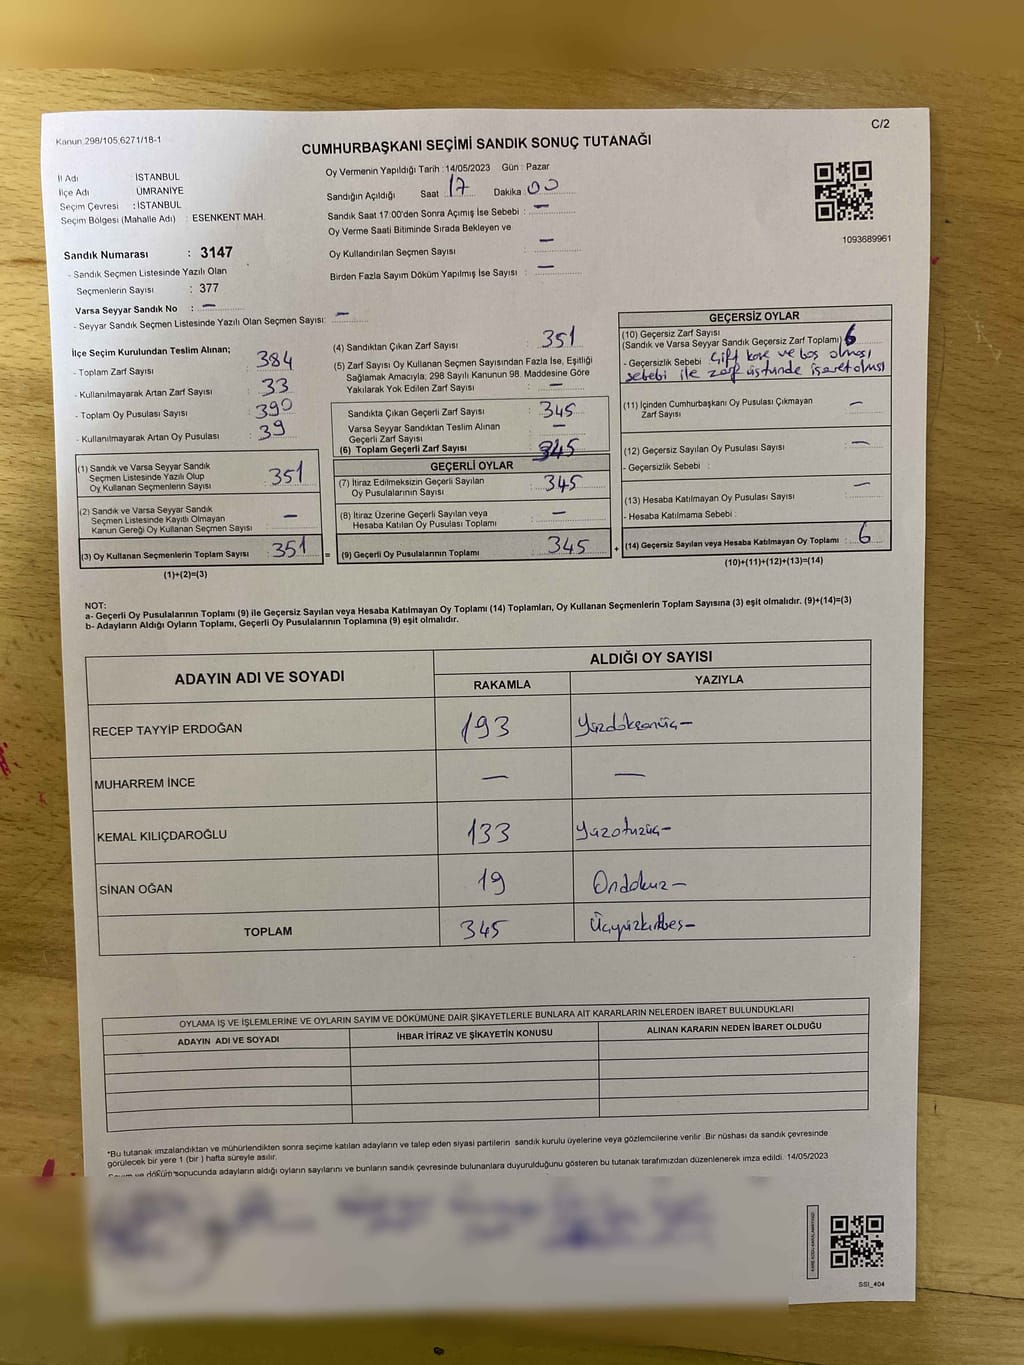 Kanun 298/105,6271/18-1
C/2
CUMHURBAŞKANI SEÇİMİ SANDIK SONUÇ TUTANAĞI
İl Adı : İSTANBUL
İlçe Adı ÜMRANİYE
Seçim Çevresi : İSTANBUL
Seçim Bölgesi (Mahalle Adı) : ESENKENT MAH.
Oy Vermenin Yapıldığı Tarih : 14/05/2023 Gün : Pazar
Sandığın Açıldığı Saat 17 Dakika 00
Sandık Saat 17:00'den Sonra Açımış İse Sebebi : —
Oy Verme Saati Bitiminde Sırada Bekleyen ve
Oy Kullandırılan Seçmen Sayısı : —
Birden Fazla Sayım Döküm Yapılmış İse Sayısı : —
1093689961
Sandık Numarası : 3147
- Sandık Seçmen Listesinde Yazılı Olan
Seçmenlerin Sayısı : 377
Varsa Seyyar Sandık No : —
- Seyyar Sandık Seçmen Listesinde Yazılı Olan Seçmen Sayısı: —
İlçe Seçim Kurulundan Teslim Alınan;
- Toplam Zarf Sayısı : 384
- Kullanılmayarak Artan Zarf Sayısı : 33
- Toplam Oy Pusulası Sayısı : 390
- Kullanılmayarak Artan Oy Pusulası : 39
(1) Sandık ve Varsa Seyyar Sandık
Seçmen Listesinde Yazılı Olup
Oy Kullanan Seçmenlerin Sayısı : 351
(2) Sandık ve Varsa Seyyar Sandık
Seçmen Listesinde Kayıtlı Olmayan
Kanun Gereği Oy Kullanan Seçmen Sayısı : —
(3) Oy Kullanan Seçmenlerin Toplam Sayısı : 351 =
(1)+(2)=(3)
(4) Sandıktan Çıkan Zarf Sayısı : 351
(5) Zarf Sayısı Oy Kullanan Seçmen Sayısından Fazla İse, Eşitliği
Sağlamak Amacıyla, 298 Sayılı Kanunun 98. Maddesine Göre
Yakılarak Yok Edilen Zarf Sayısı : —
Sandıkta Çıkan Geçerli Zarf Sayısı : 345
Varsa Seyyar Sandıktan Teslim Alınan
Geçerli Zarf Sayısı : —
(6) Toplam Geçerli Zarf Sayısı : 345
GEÇERLİ OYLAR
(7) İtiraz Edilmeksizin Geçerli Sayılan
Oy Pusulalarının Sayısı : 345
(8) İtiraz Üzerine Geçerli Sayılan veya
Hesaba Katılan Oy Pusulası Toplamı : —
(9) Geçerli Oy Pusulalarının Toplamı : 345 +
GEÇERSİZ OYLAR
(10) Geçersiz Zarf Sayısı
(Sandık ve Varsa Seyyar Sandık Geçersiz Zarf Toplamı) 6
- Geçersizlik Sebebi Çift kaşe ve boş olması
sebebi ile zarf üstünde işaret olması
(11) İçinden Cumhurbaşkanı Oy Pusulası Çıkmayan
Zarf Sayısı : —
(12) Geçersiz Sayılan Oy Pusulası Sayısı : —
- Geçersizlik Sebebi :
(13) Hesaba Katılmayan Oy Pusulası Sayısı : —
- Hesaba Katılmama Sebebi :
(14) Geçersiz Sayılan veya Hesaba Katılmayan Oy Toplamı : 6
(10)+(11)+(12)+(13)=(14)
NOT:
a- Geçerli Oy Pusulalarının Toplamı (9) ile Geçersiz Sayılan veya Hesaba Katılmayan Oy Toplamı (14) Toplamları, Oy Kullanan Seçmenlerin Toplam Sayısına (3) eşit olmalıdır. (9)+(14)=(3)
b- Adayların Aldığı Oyların Toplamı, Geçerli Oy Pusulalarının Toplamına (9) eşit olmalıdır.
ADAYIN ADI VE SOYADI
ALDIĞI OY SAYISI
RAKAMLA YAZIYLA
RECEP TAYYİP ERDOĞAN 193 Yüzdoksanüç—
MUHARREM İNCE — —
KEMAL KILIÇDAROĞLU 133 Yüzotuzüç—
SİNAN OĞAN 19 Ondokuz—
TOPLAM 345 Üçyüzkırkbeş—
OYLAMA İŞ VE İŞLEMLERİNE VE OYLARIN SAYIM VE DÖKÜMÜNE DAİR ŞİKAYETLERLE BUNLARA AİT KARARLARIN NELERDEN İBARET BULUNDUKLARI
ADAYIN ADI VE SOYADI İHBAR İTİRAZ VE ŞİKAYETİN KONUSU ALINAN KARARIN NEDEN İBARET OLDUĞU
*Bu tutanak imzalandıktan ve mühürlendikten sonra seçime katılan adayların ve talep eden siyasi partilerin sandık kurulu üyelerine veya gözlemcilerine verilir .Bir nüshası da sandık çevresinde
görülecek bir yere 1 (bir ) hafta süreyle asılır.
Sayım ve döküm sonucunda adayların aldığı oyların sayılarını ve bunların sandık çevresinde bulunanlara duyurulduğunu gösteren bu tutanak tarafımızdan düzenlenerek imza edildi. 14/05/2023
SSI_404